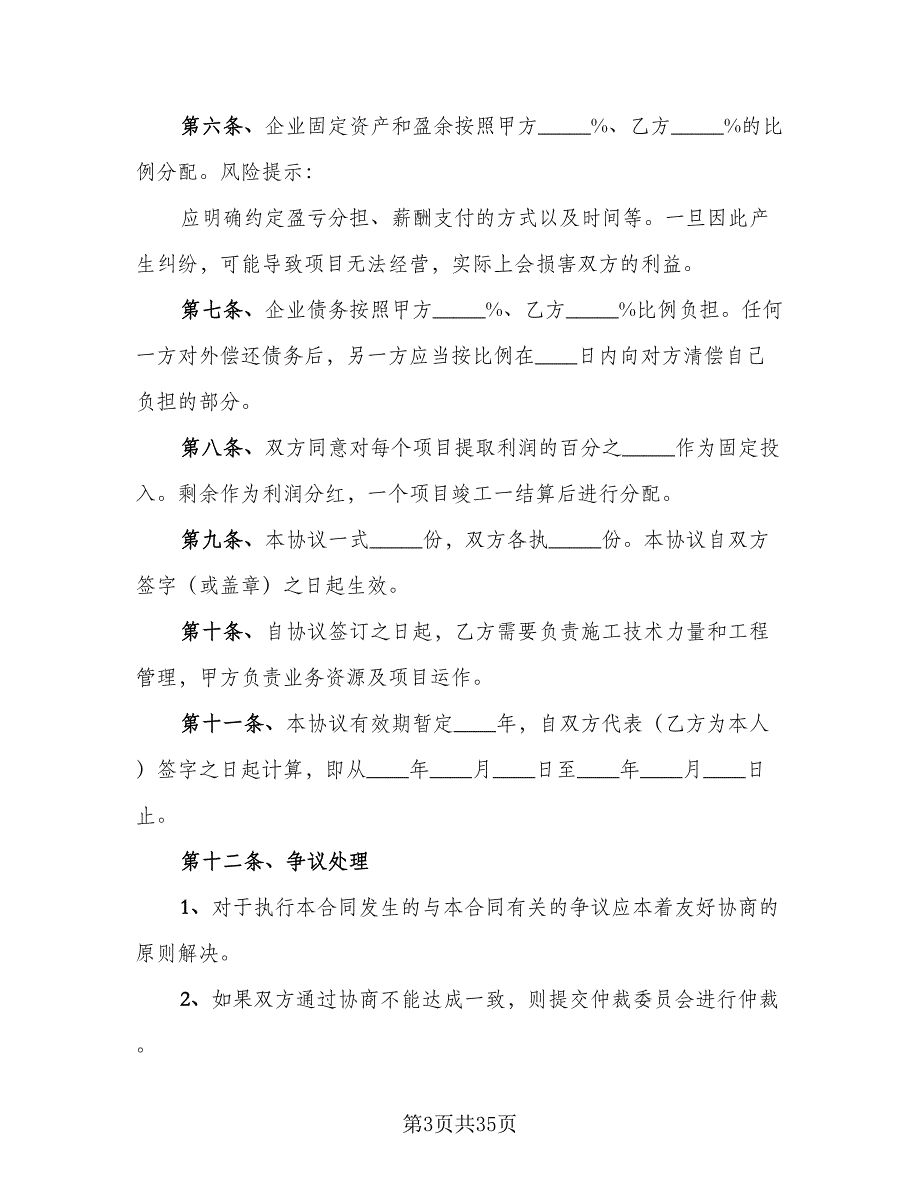 第六条、企业固定资产和盈余按照甲方_____%、乙方_____%的比
例分配。风险提示：
应明确约定盈亏分担、薪酬支付的方式以及时间等。一旦因此产
生纠纷，可能导致项目无法经营，实际上会损害双方的利益。
第七条、企业债务按照甲方_____%、乙方_____%比例负担。任何
一方对外偿还债务后，另一方应当按比例在____日内向对方清偿自己
负担的部分。
第八条、双方同意对每个项目提取利润的百分之_____作为固定投
入。剩余作为利润分红，一个项目竣工一结算后进行分配。
第九条、本协议一式_____份，双方各执_____份。本协议自双方
签字（或盖章）之日起生效。
第十条、自协议签订之日起，乙方需要负责施工技术力量和工程
管理，甲方负责业务资源及项目运作。
第十一条、本协议有效期暂定____年，自双方代表（乙方为本人
）签字之日起计算，即从____年____月____日至____年____月____日
止。
第十二条、争议处理
1、对于执行本合同发生的与本合同有关的争议应本着友好协商的
原则解决。
2、如果双方通过协商不能达成一致，则提交仲裁委员会进行仲裁
。
第3页共35页